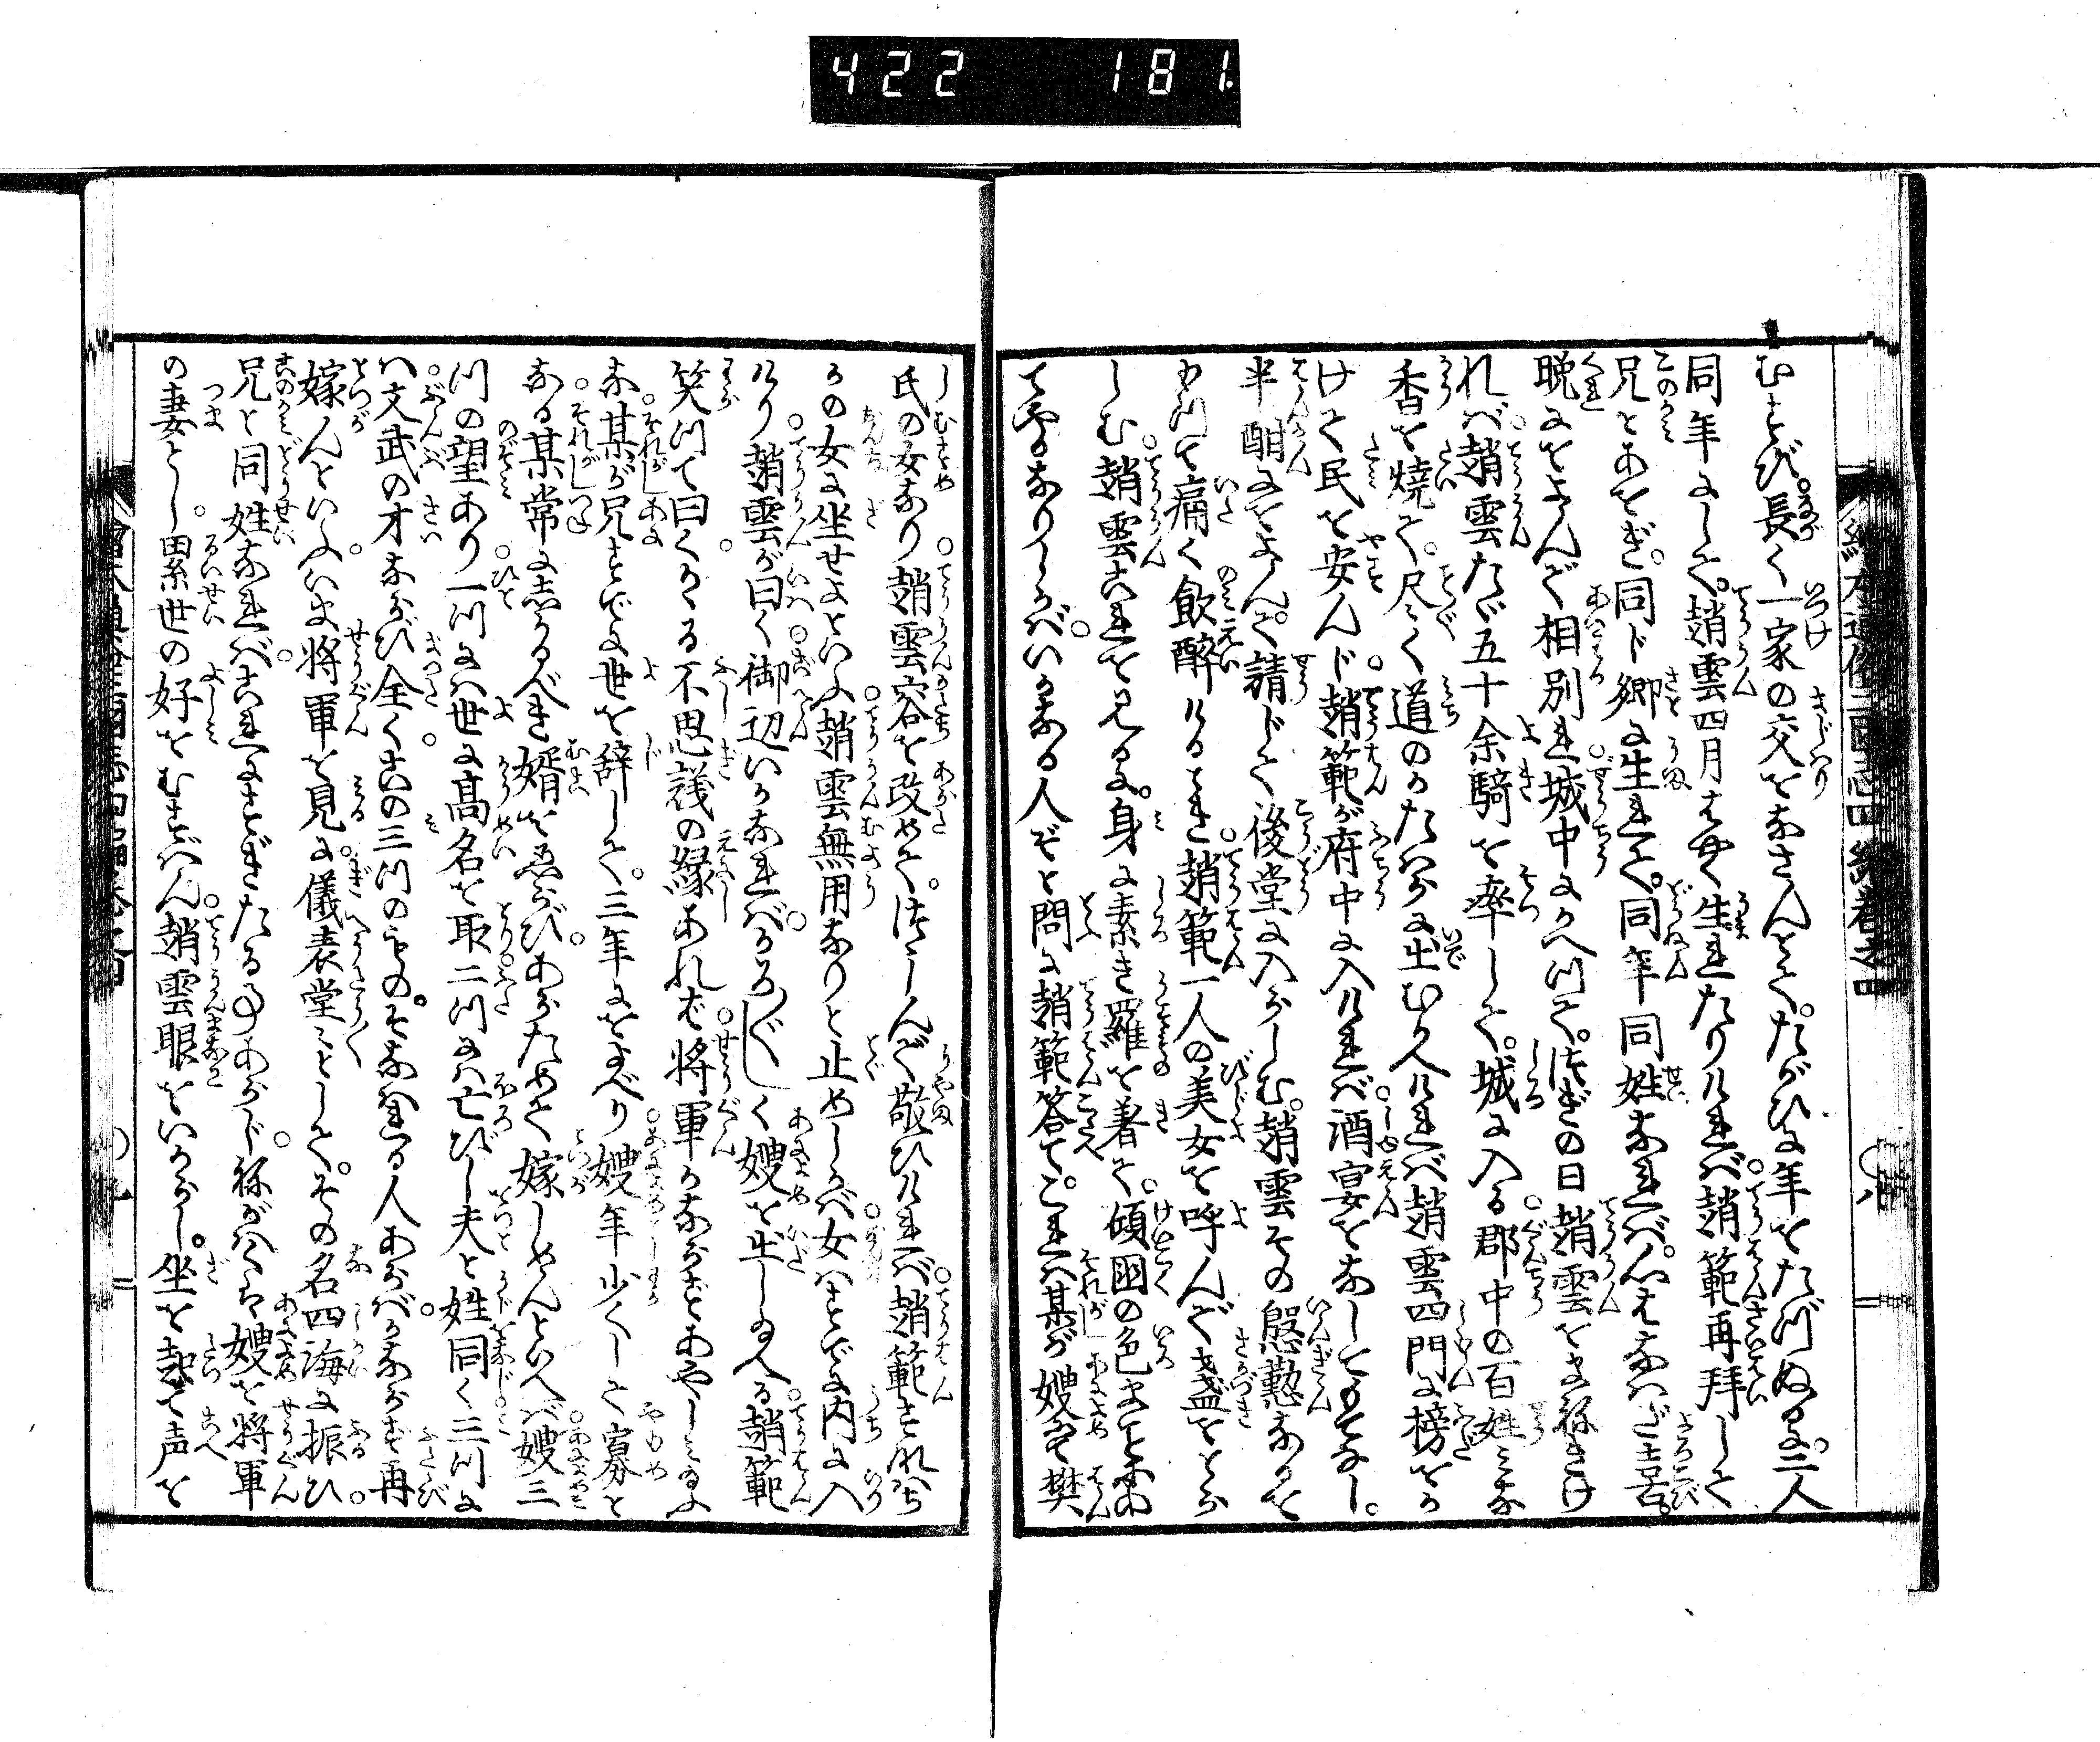 422 181
むすび。長く一家の交をなさんとて。たがひに年をたづぬるに。二人
同年にして。趙雲四月はやく生れたりければ。趙範再拝して
兄とあをぎ。同じ郷に生れて。同年同姓なれば。心はなはだ喜。
晩にをよんで相別れ城中にかへりて。次ぎの日趙雲をまねきけ
れば。趙雲たゞ五十余騎を率して。城に入る。郡中の百姓みな
香を焼て。尽く道のかたはらに出むかへければ趙雲四門に榜をか
けて民を安んじ。趙範が府中に入ければ。酒宴をなしてもてなし。
半酣にをよんで請じて後堂に入らしむ。趙雲その慇懃なるを
かんじて痛く飲酔けるとき。趙範一人の美女を呼んで盞をとら
しむ。趙雲これを見るに。身に素き羅を着て。傾国の色まことに
てやかなりしかば。いかなる人ぞと問に趙範答て。これは某が嫂にて樊
氏の女なり。趙雲容を改めて。つゝしんで敬ひければ。趙範すなはち
かの女に坐せよといふ。趙雲無用なりと止めしかば。女はすでに内に入
けり。趙雲が曰く。御辺いかなれば。かろ〴〵しく嫂を出し給へる。趙範
笑って曰く。かゝる不思議の縁あれば。将軍かならずとあやしみ給ふ
な。某が兄すでに世を辞して。三年にをよべり。嫂年少くして寡と
なる。某常にしかるべき婿をゑらび。あらためて嫁しめんといへば。嫂三
つの望あり。一つには世に高名を取。二つには亡びし夫と姓同く。三つに
は。文武の才ならび全く。この三つのもの。そなはれる人あらば。かならず再
嫁んといふ。いま将軍を見に。儀表堂々として。その名四海に振ひ。
兄と同姓なれば。これにすぎたる事あらじ。ねがはくは嫂を将軍
の妻とし。累世の好をむすばん。趙雲眼をいからし。坐を起て声を